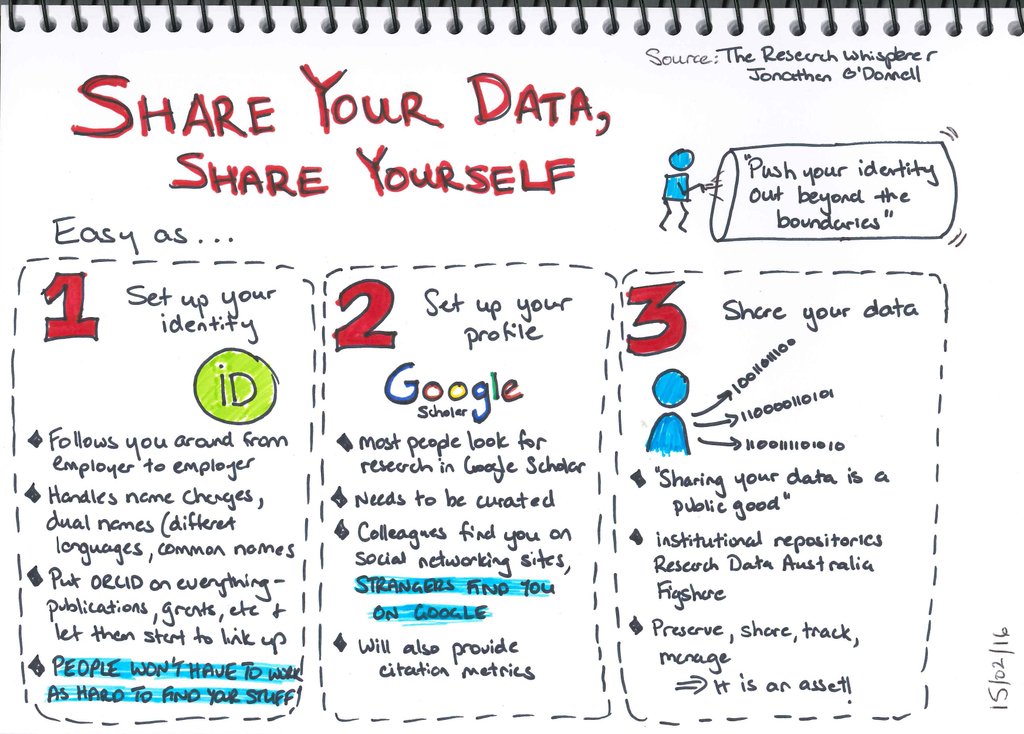 Source: The Research Whisperer
Jonathan O'Donnell
SHARE YOUR DATA,
SHARE YOURSELF
"Push your identity
out beyond the
boundaries"
Easy as...
1 Set up your
identity
iD
Follows you around from
employer to employer
Handles name changes,
dual names (different
languages, common names
Put ORCID on everything -
publications, grants, etc +
let them start to link up
PEOPLE WON'T HAVE TO WORK
AS HARD TO FIND YOUR STUFF!
2 Set up your
profile
Google
Scholar
most people look for
research in Google Scholar
Needs to be curated
Colleagues find you on
social networking sites,
STRANGERS FIND YOU
ON GOOGLE
Will also provide
citation metrics
3 Share your data
1001101100
110000110101
110011101010
"Sharing your data is a
public good"
institutional repositories
Research Data Australia
Figshare
Preserve, share, track,
manage
⇒ It is an asset!
15/02/16